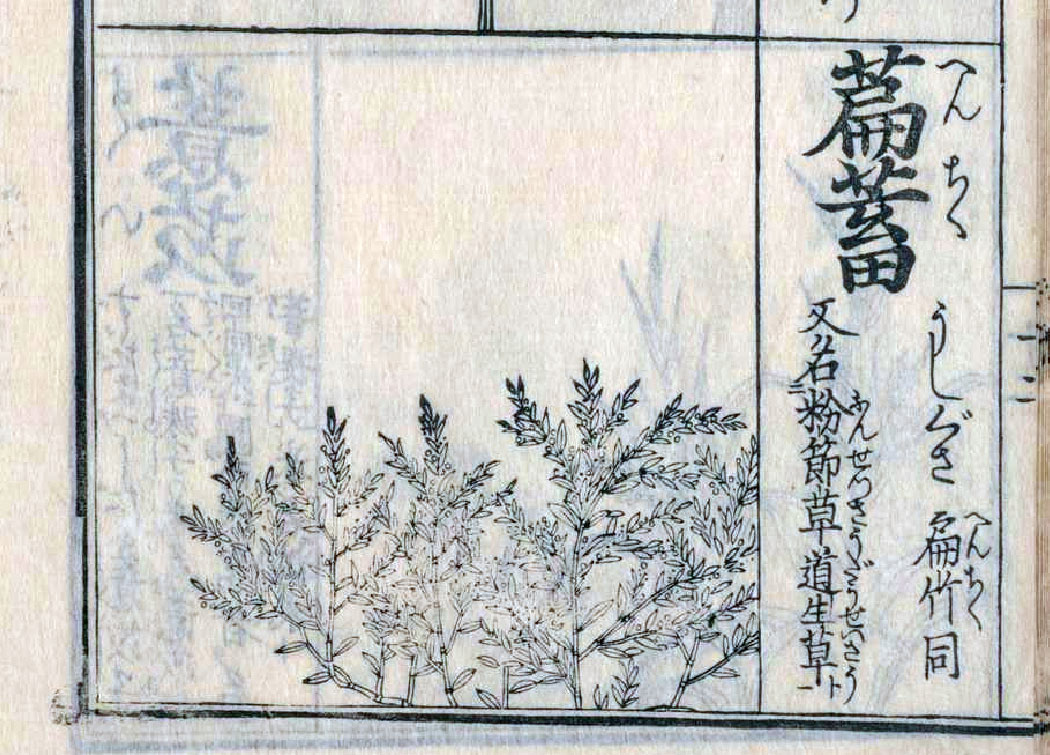 萹蓄
へんちく
うしぐさ 扁竹同
へんちく
又名粉節草道生草ト
ふんせつさう だうせいさう